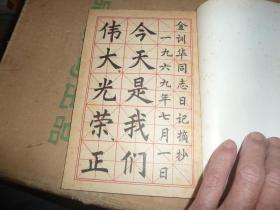 金训华同志日记摘抄
一九六九年七月一日
今天是我们
伟大,光荣,正